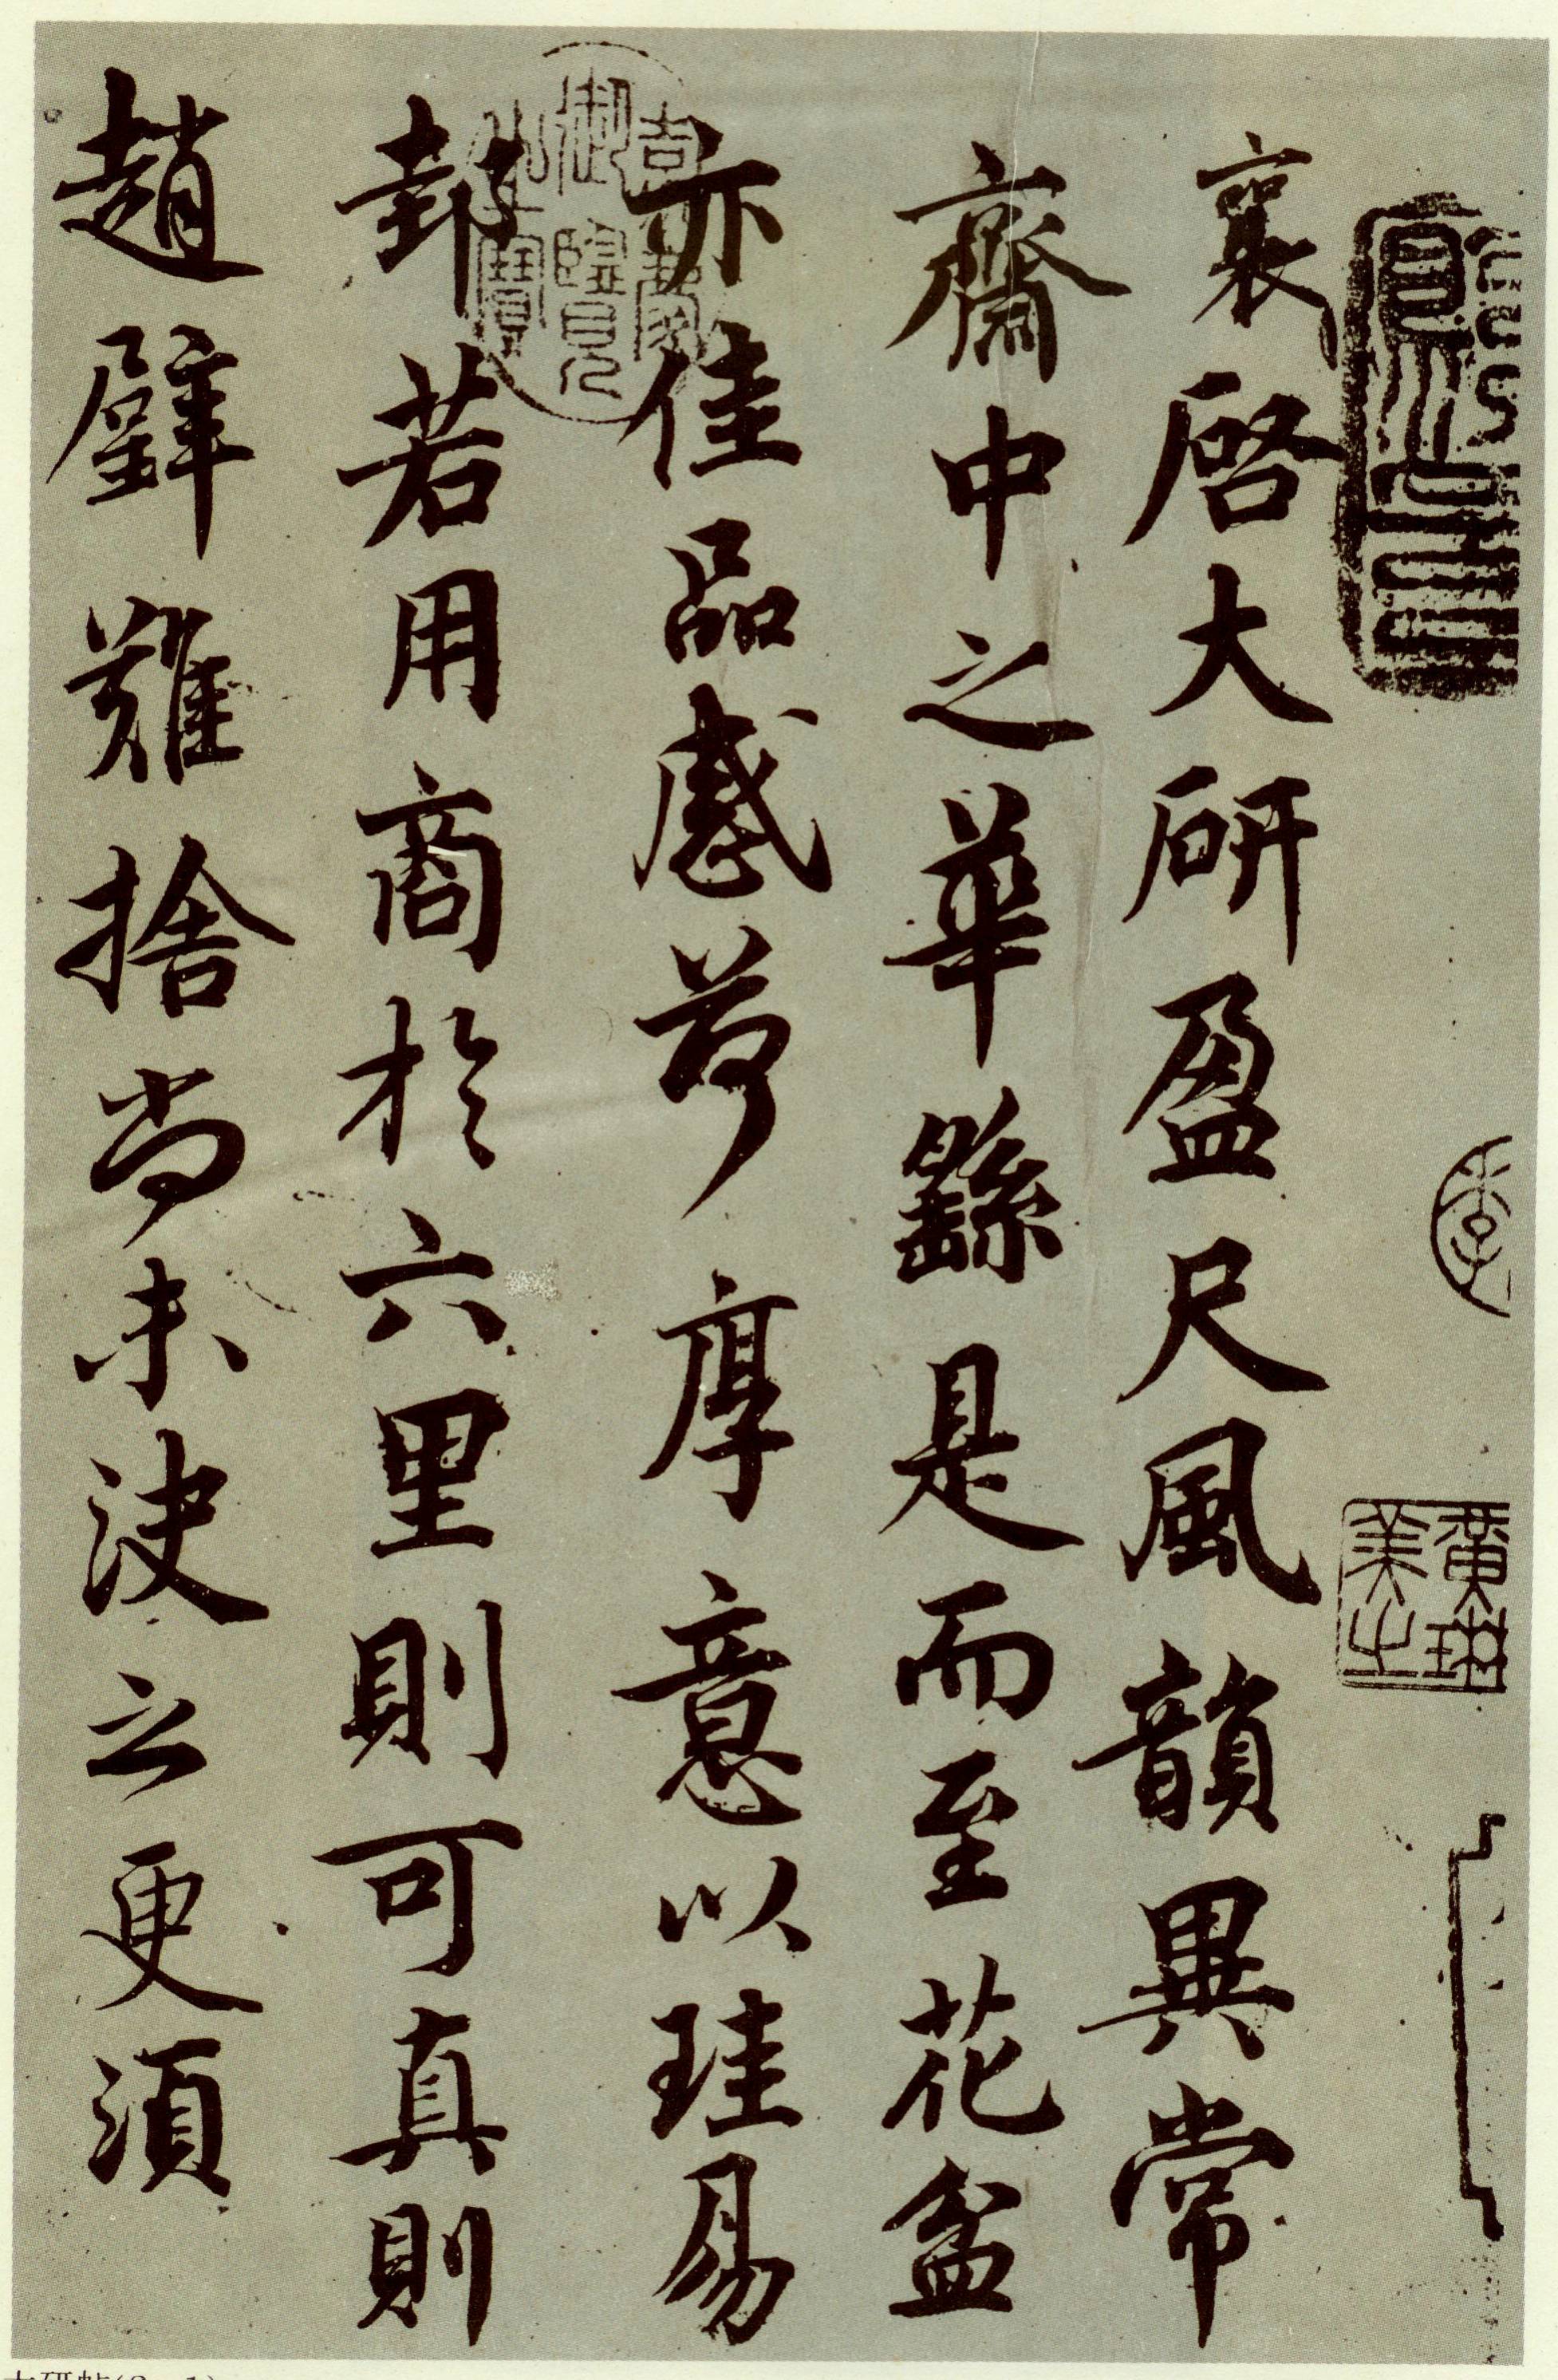 襄啓大研盈尺風韻異常
齋中之華繇是而至花盆
亦佳品感荷厚意以珪易
邽若用商於六里則可真則
趙璧難捨尚未決之更須
嘉慶御覽之寶